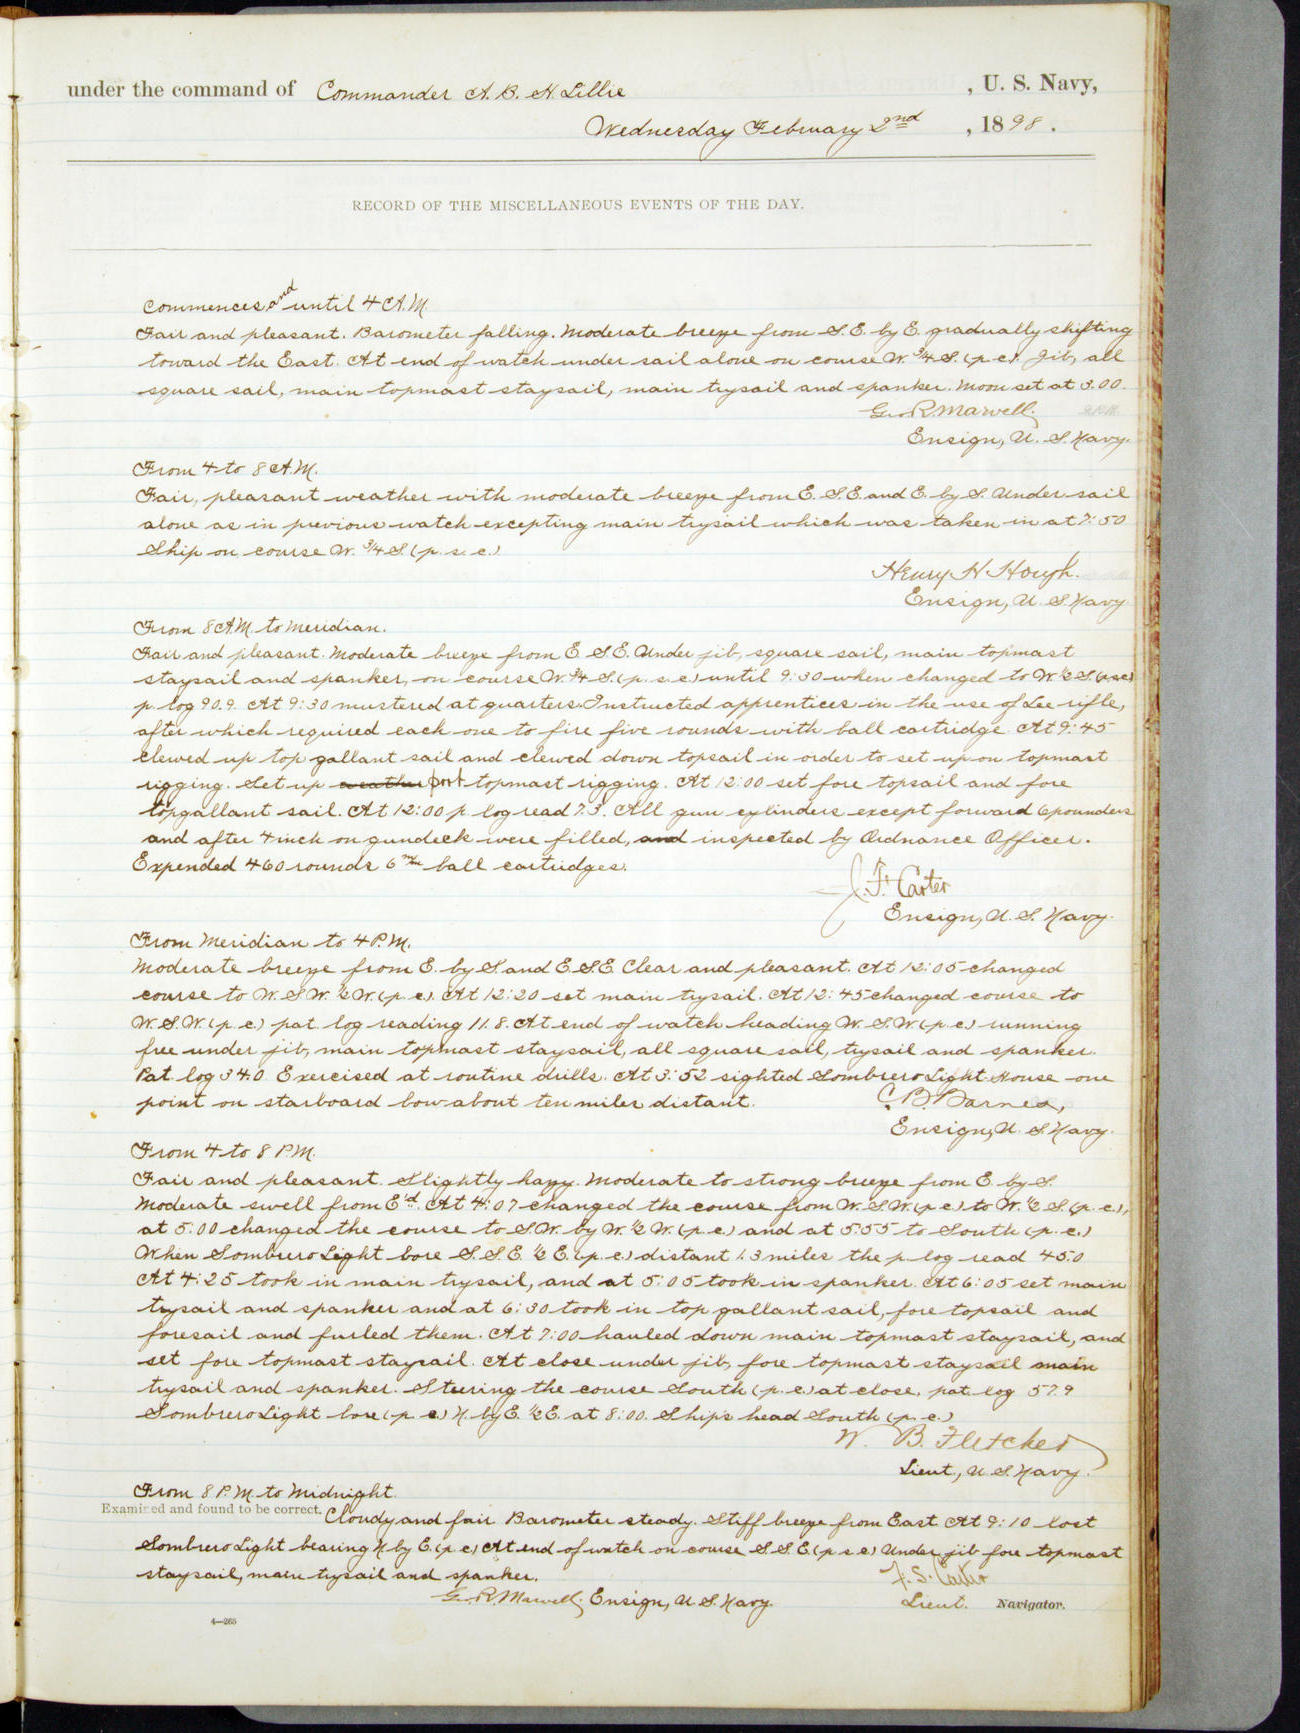 under the command of Commander A. B. H. Lillie , U. S. Navy,
Wednesday February 2nd , 1898.
RECORD OF THE MISCELLANEOUS EVENTS OF THE DAY.
Commences and until 4 A.M.
Fair and pleasant. Barometer falling. Moderate breeze from S.E. by E. gradually shifting
toward the East. At end of watch under sail alone on course W. 3/4 S. (p.c.). Jib, all
square sail, main topmast staysail, main trysail and spanker. Moon set at 3.00.
Geo. R. Marvell.
Ensign, U. S. Navy.
From 4 to 8 A.M.
Fair, pleasant weather with moderate breeze from E. S. E. and E. by S. Under sail
alone as in previous watch excepting main trysail which was taken in at 7:50
Ship on course W. 3/4 S (p. s. c.)
Henry H. Hough.
Ensign, U. S. Navy.
From 8 A.M. to Meridian.
Fair and pleasant. Moderate breeze from E. S. E. Under jib, square sail, main topmast
staysail and spanker, on course W. 3/4 S. (p. s. c.) until 9:30 when changed to W. 1/2 S. (p.s.c.)
p. log 90.9. At 9:30 mustered at quarters. Instructed apprentices in the use of Lee rifle,
after which required each one to fire five rounds with ball cartridge. At 9:45
clewed up top gallant sail and clewed down topsail in order to set up on topmast
rigging. Set up weather port topmast rigging. At 12:00 set fore topsail and fore
topgallant sail. At 12:00 p. log read 7.3. All gun cylinders except forward 6 pounders
and after 4 inch on gundeck were filled, and inspected by Ordnance Officer.
Expended 460 rounds 6 m/m ball cartridges.
J. F. Carter
Ensign, U. S. Navy.
From Meridian to 4 P.M.
Moderate breeze from E. by S. and E.S.E. Clear and pleasant. At 12:05 changed
course to W. S. W. 1/2 W. (p. c.). At 12:20 set main trysail. At 12:45 changed course to
W. S. W. (p. c.) pat. log reading 11.8. At end of watch heading W. S. W. (p. c.) running
free under jib, main topmast staysail, all square sail, trysail and spanker.
Pat. log 34.0. Exercised at routine drills. At 3:52 sighted Sombrero Light House one
point on starboard bow about ten miles distant.
C. B. Barnes,
Ensign, U. S. Navy.
From 4 to 8 P.M.
Fair and pleasant. Slightly hazy. Moderate to strong breeze from E. by S.
Moderate swell from E'd. At 4:07 changed the course from W. S. W. (p c) to W. 1/2 S. (p. c.),
at 5:00 changed the course to S.W. by W. 1/2 W. (p. c) and at 5:55 to South (p. c.)
When Sombrero Light bore S. S. E. 1/2 E. (p. c) distant 1.3 miles the p. log read 45.0
At 4:25 took in main trysail, and at 5:05 took in spanker. At 6:05 set main
trysail and spanker and at 6:30 took in top gallant sail, fore topsail and
foresail and furled them. At 7:00 hauled down main topmast staysail, and
set fore topmast staysail. At close under jib, fore topmast staysail main
trysail and spanker. Steering the course South (p. c.) at close, pat. log 57.9
Sombrero Light bore (p. c) N. by E. 1/2 E. at 8:00. Ships head South (p. c.)
W. B. Fletcher
Lieut., U. S. Navy.
From 8 P.M. to Midnight.
Examined and found to be correct.
Cloudy and fair Barometer steady. Stiff breeze from East At 9:10 lost
Sombrero Light bearing N by E. (p c) At end of watch on course S. S. E. (p s c) Under jib fore topmast
staysail, main trysail and spanker.
G. R. Marvell, Ensign, U. S. Navy.
Lieut. Navigator.
4—265